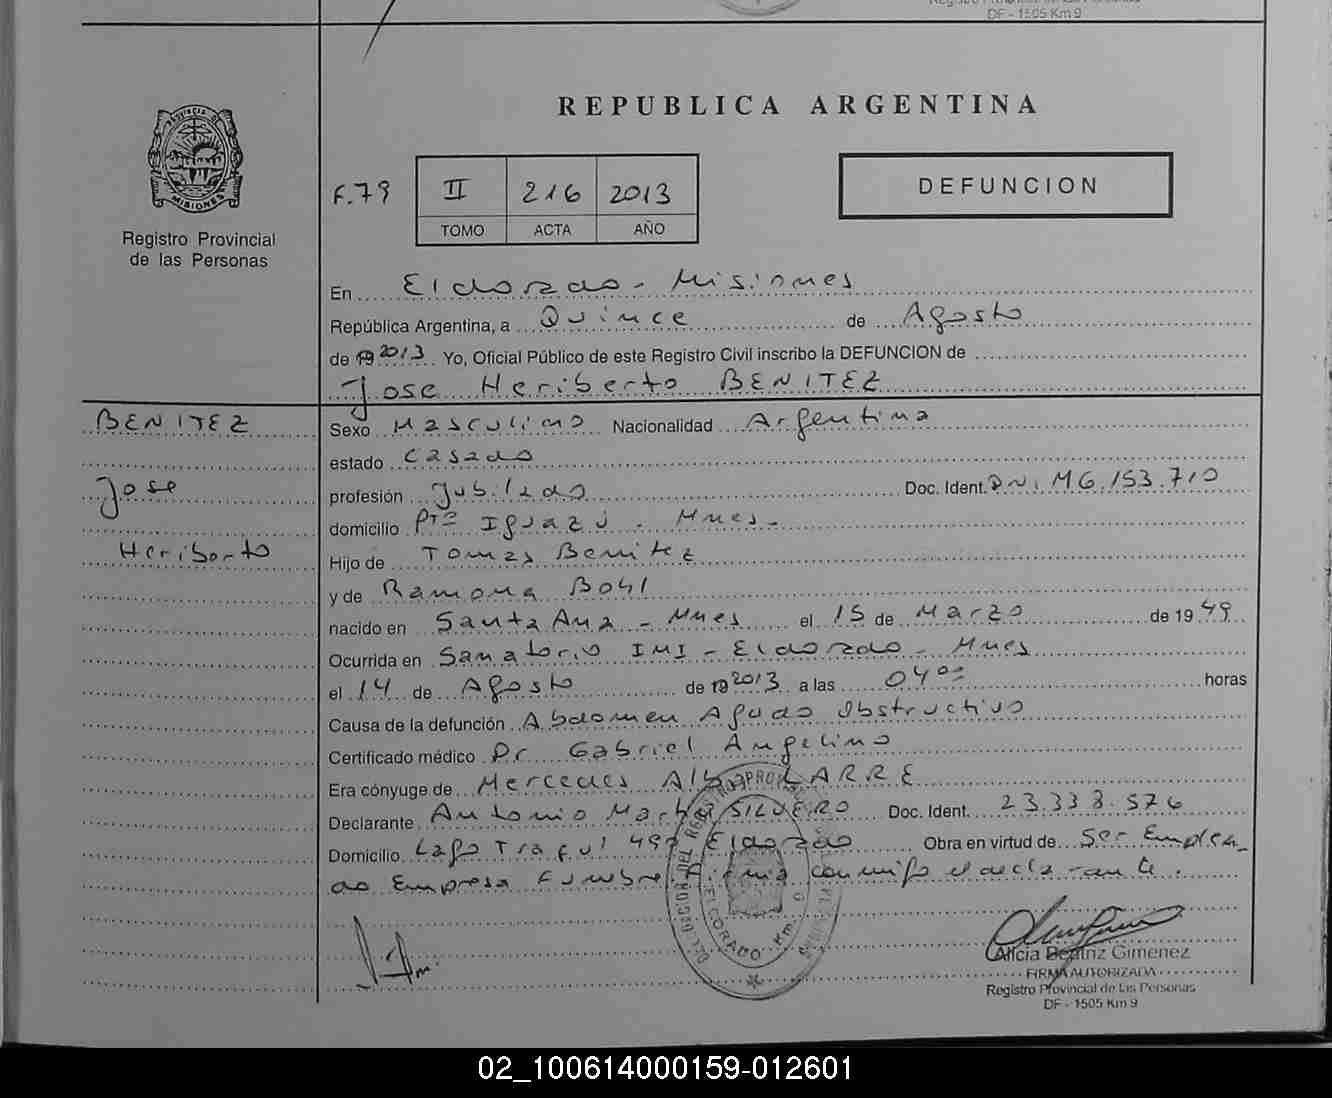 DF - 1505 Km 9
PROVINCIA DE
MISIONES
Registro Provincial
de las Personas
REPUBLICA ARGENTINA
DEFUNCION
F.79 II 216 2013
TOMO ACTA AÑO
En Eldorado - Misiones
República Argentina, a Quince de Agosto
de 19 2013 Yo, Oficial Público de este Registro Civil inscribo la DEFUNCION de
Jose Heriberto BENITEZ
BENITEZ
Jose
Heriberto
Sexo Masculino Nacionalidad Argentina
estado Casado
profesión Jubilado Doc. Ident. DNI M6.153.710
domicilio Pto Iguazú - Mnes -
Hijo de Tomas Benitez
y de Ramona Bohl
nacido en Santa Ana - Mnes el 15 de Marzo de 1949
Ocurrida en Sanatorio IMI - Eldorado - Mnes
el 14 de Agosto de 19 2013 a las 04 00 horas
Causa de la defunción Abdomen Agudo Obstructivo
Certificado médico Dr Gabriel Angelino
Era cónyuge de Mercedes Alba LARRE
Declarante Antonio Martin SILVERO Doc. Ident. 23.338.576
Domicilio Lago Traful 499 Eldorado Obra en virtud de Ser Emplea_
do Empresa Funebre. Firma conmigo el declarante.
ELDORADO Km. 9
Alicia Beatriz Gimenez
FIRMA AUTORIZADA
Registro Provincial de las Personas
DF - 1505 Km 9
02_100614000159-012601